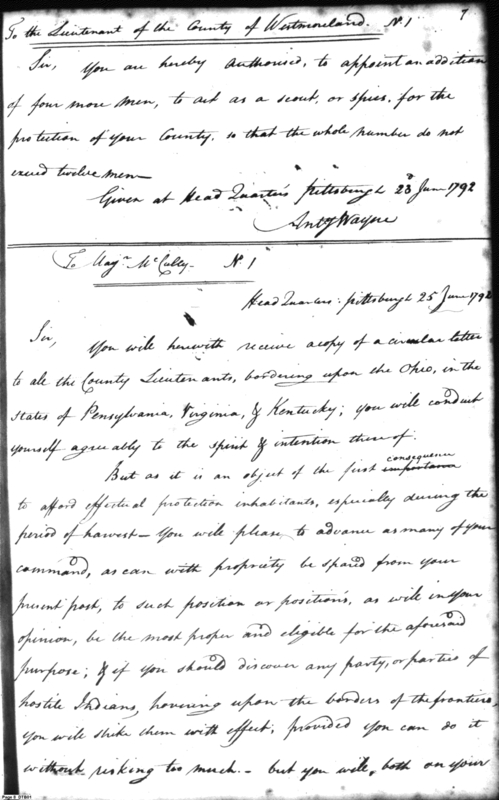 7
To the Lieutenant of the County of Westmoreland. N. 1
Sir, You are hereby Authorised, to appoint an addition
of four more men, to act as a scout, or spies, for the
protection of your County, so that the whole number do not
exceed twelve men—
Given at Head Quarters Pittsburgh 23d June 1792
Anty Wayne
To Majr. McCully— N. 1
Head Quarters: Pittsburgh 25 June 1792
Sir,
You will herewith receive a copy of a circular letter
to all the County Lieutenants, bordering upon the Ohio, in the
states of Pensylvania, Virginia, & Kentucky; you will conduct
yourself agreeably to the spirit & intention thereof.
consequence
But as it is an object of the first importance
to afford effectual protection inhabitants, especially during the
period of harvest— You will please, to advance as many of your
command, as can with propriety be spared from your
present post, to such position or positions, as will in your
opinion, be the most proper and eligible for the aforesaid
purpose; & if you should discover any party, or parties of
hostile Indians, hovering upon the borders of the frontiers,
you will strike them with effect; provided you can do it
without risking too much.— but you will, both on your
Page 8